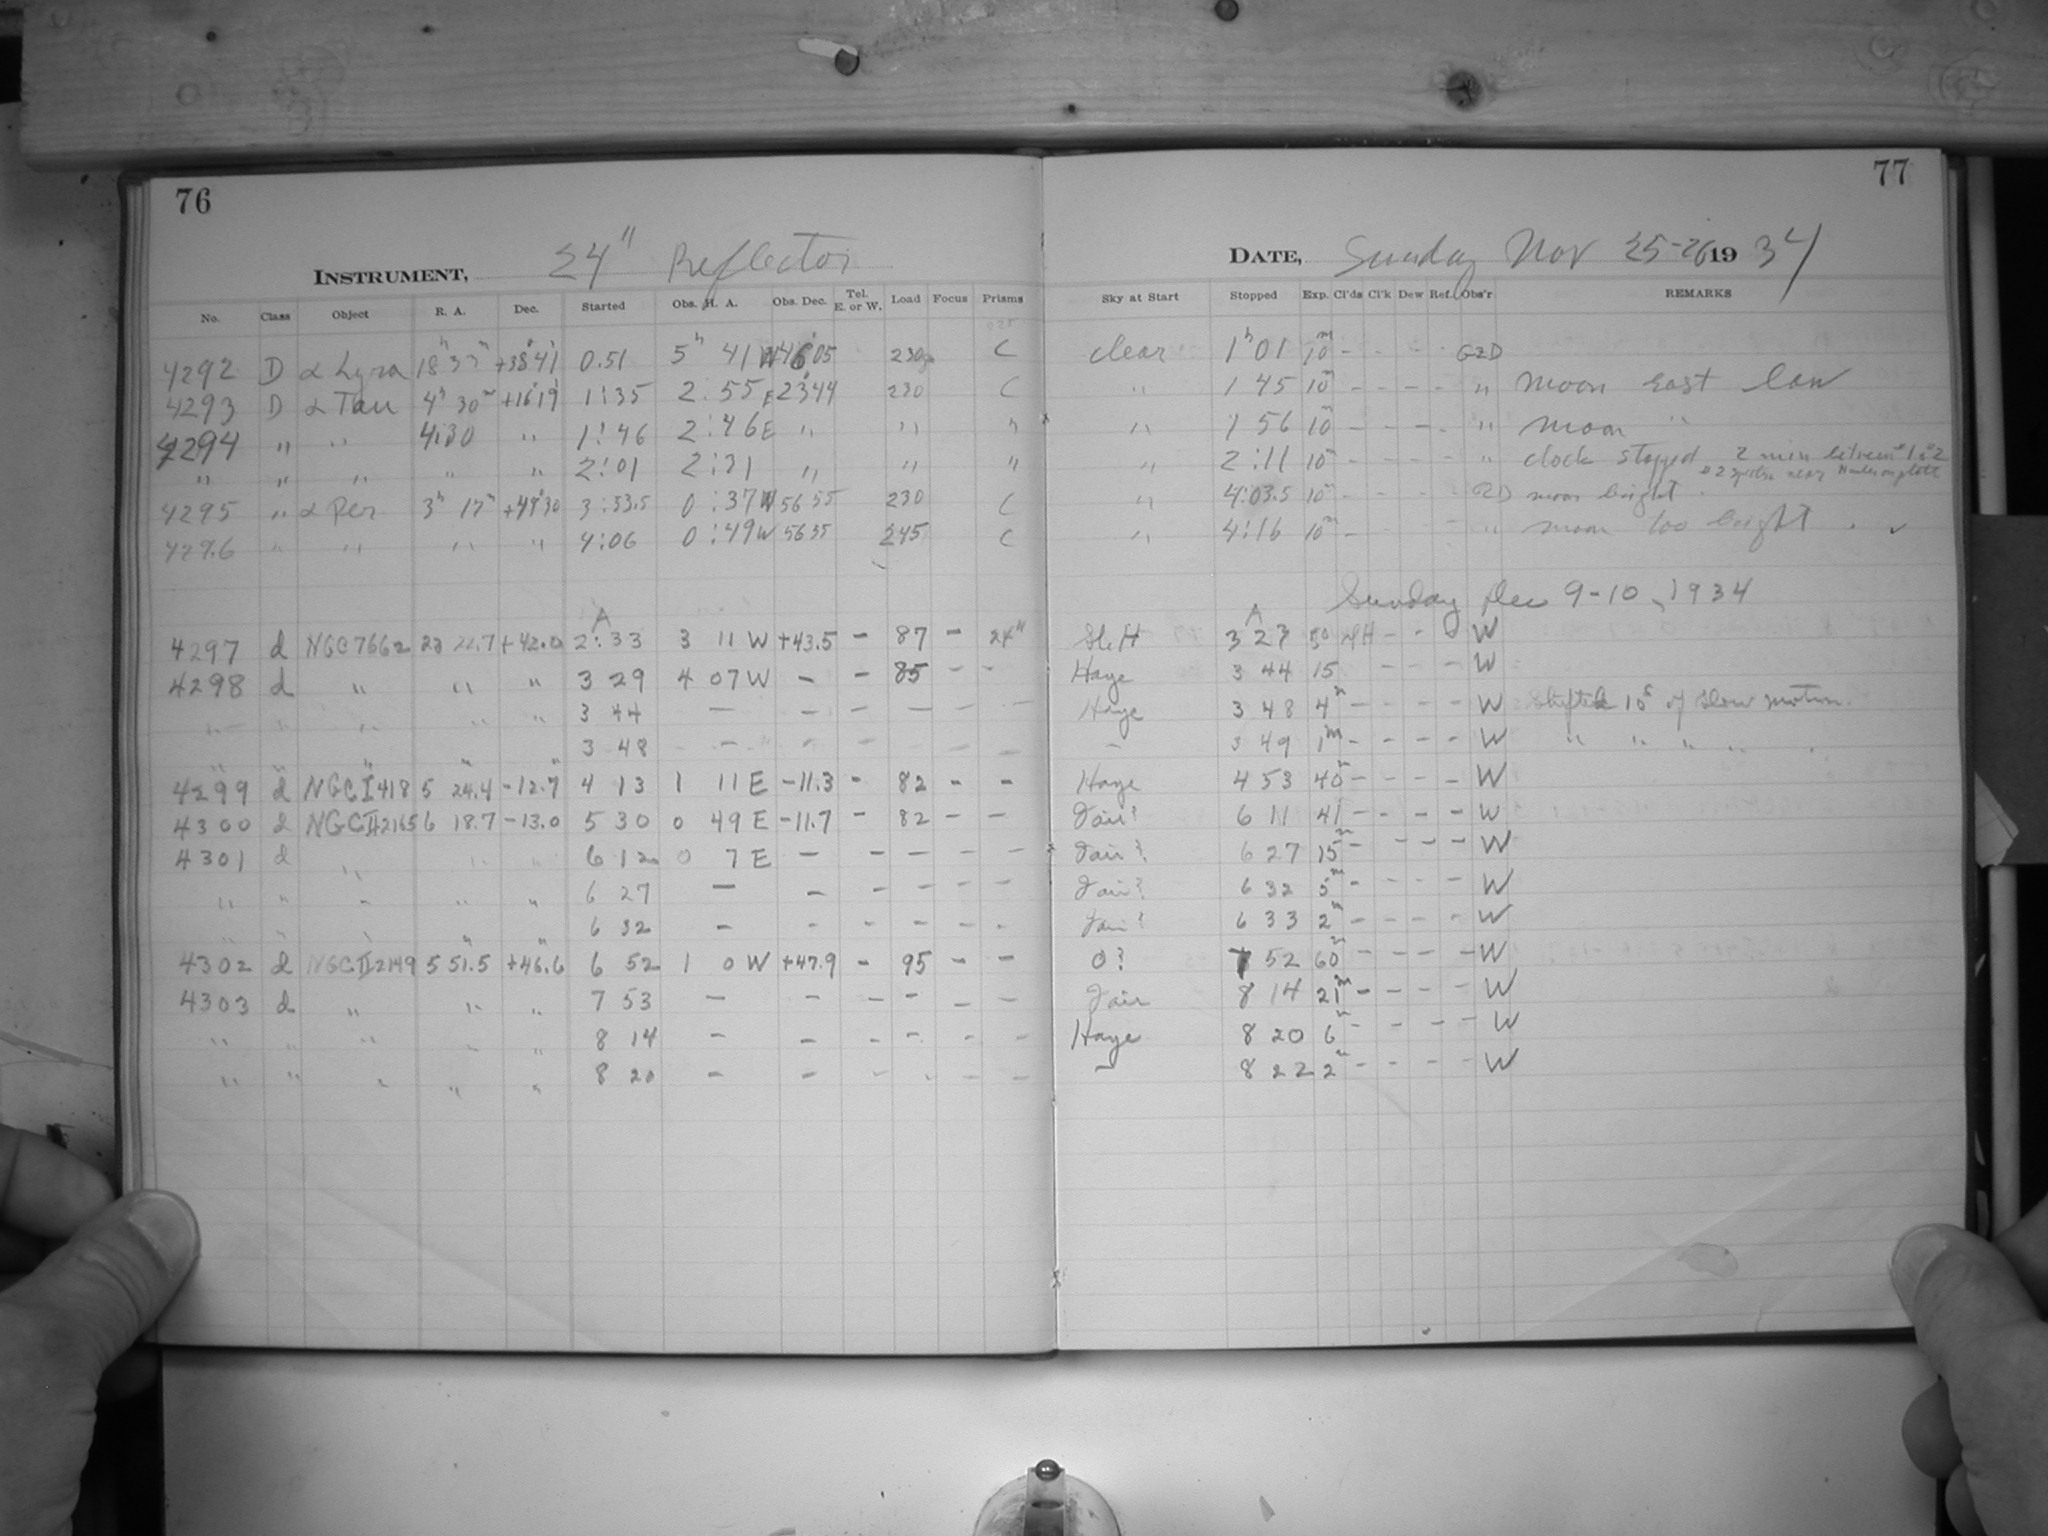 76
77
INSTRUMENT, 24" Reflector
DATE, Sunday Nov 25-26 19 34
No. Class Object R. A. Dec. Started Obs. H. A. Obs. Dec. Tel. E. or W. Load Focus Prisms Sky at Start Stopped Exp. Cl'ds Cl'k Dew Ref. Obs'r REMARKS
4292 D α Lyra 18h 33m +38°41' 0.51 5h 41 W +46°05 230 C clear 1h 01 10m - - - GZD
4293 D α Tau 4h 30m +16°19' 1:35 2:55 E 23°44 230 C " 1 45 10m - - - - " moon east low
4294 " " 4:30 " 1:46 2:46 E " " " " 1 56 10 - - - - " moon "
" " " " " 2:01 2:31 " " " " 2:11 10m - - - - " clock stopped 2 min between #1 #2
4295 " α Per 3h 17m +49°30 3:53.5 0:37 W 56 55 230 C " 4:03.5 10m - - - - GZD moon bright.
4296 " " " " 4:06 0:49 W 56 55 245 C " 4:16 10m - " moon too bright. ✓
Sunday Dec 9-10, 1934
A A
4297 d NGC 7662 23 22.7 +42.0 2:33 3 11 W +43.5 - 87 - 24" 3 23 50 - - - W
4298 d " " " 3 29 4 07 W - - 85 - - Haze 3 44 15 - - - W
" " " " " 3 44 - - - - - - Haze 3 48 4m - - - - W Shifted 10s of slow motion.
" " " " " 3 48 - - - - - - - 3 49 1m - - - - W " " " " .
4299 d NGC I 418 5 24.4 -12.7 4 13 1 11 E -11.3 - 82 - - Haze 4 53 40m - - - - W
4300 d NGC II 2165 6 18.7 -13.0 5 30 0 49 E -11.7 - 82 - - Fair? 6 11 41 - - - - W
4301 d " " " 6 12 0 7 E - - - - - Fair? 6 27 15m - - - - W
" " " " " 6 27 - - - - - - Fair? 6 32 5m - - - - W
" " " " " 6 32 - - - - - - Fair? 6 33 2m - - - - W
4302 d NGC II 2149 5 51.5 +46.6 6 52 1 0 W +47.9 - 95 - - O? 7 52 60m - - - - W
4303 d " " " 7 53 - - - - - - Fair 8 14 21m - - - - W
" " " " " 8 14 - - - - - - Haze 8 20 6m - - - - W
" " " " " 8 20 - - - - - - - 8 22 2m - - - - W